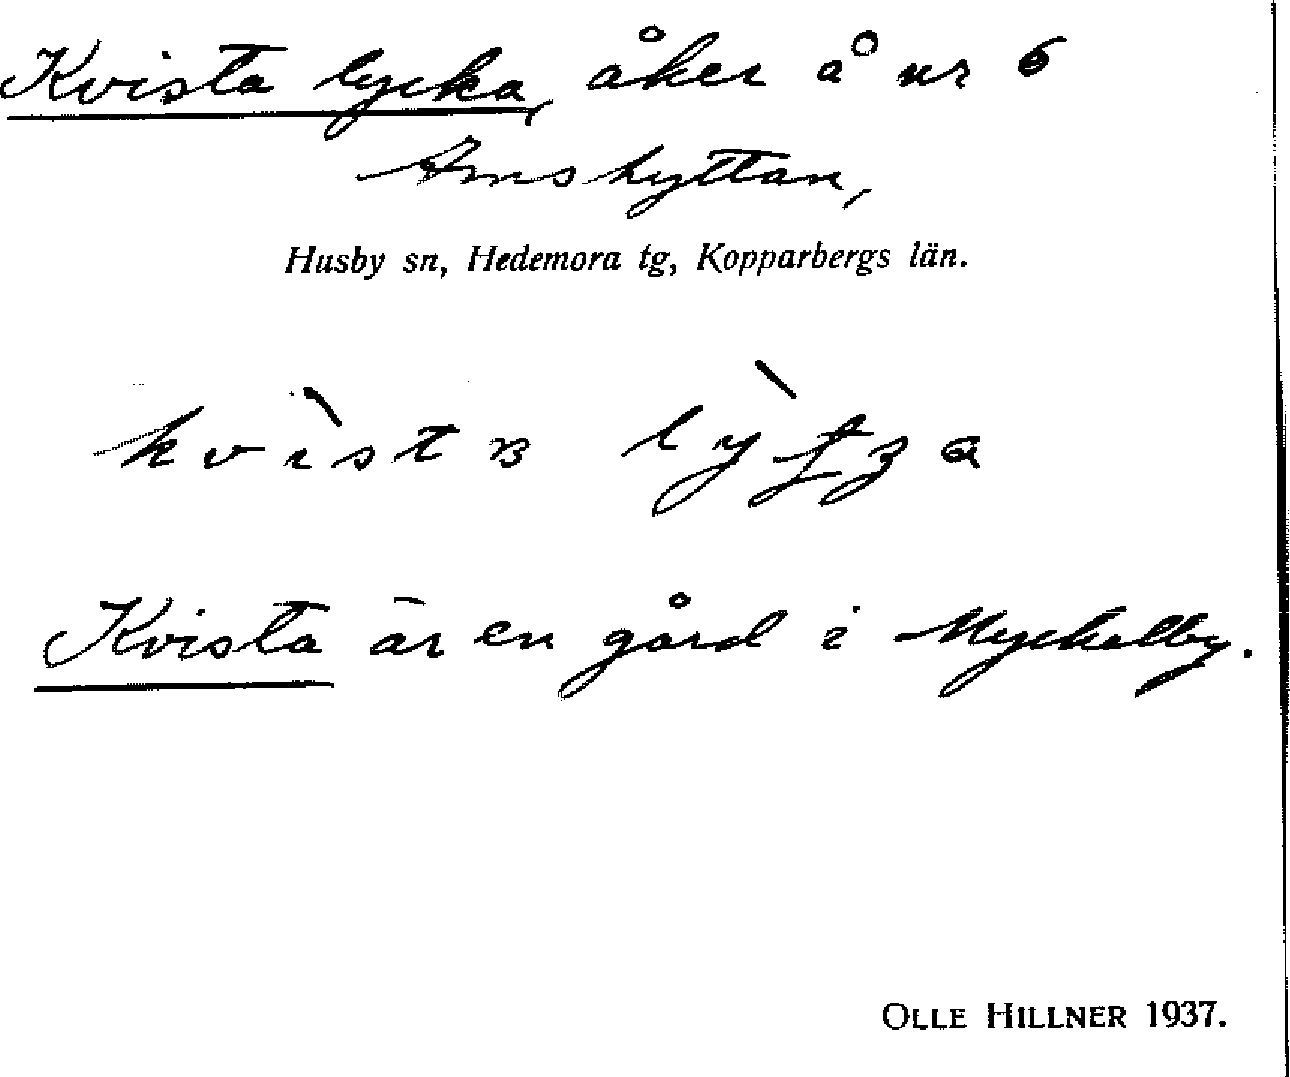 Kvista lycka, åker å nr 6
Amshyttan,
Husby sn, Hedemora tg, Kopparbergs län.
Kvista är en gård i Myckelby.
OLLE HILLNER 1937.